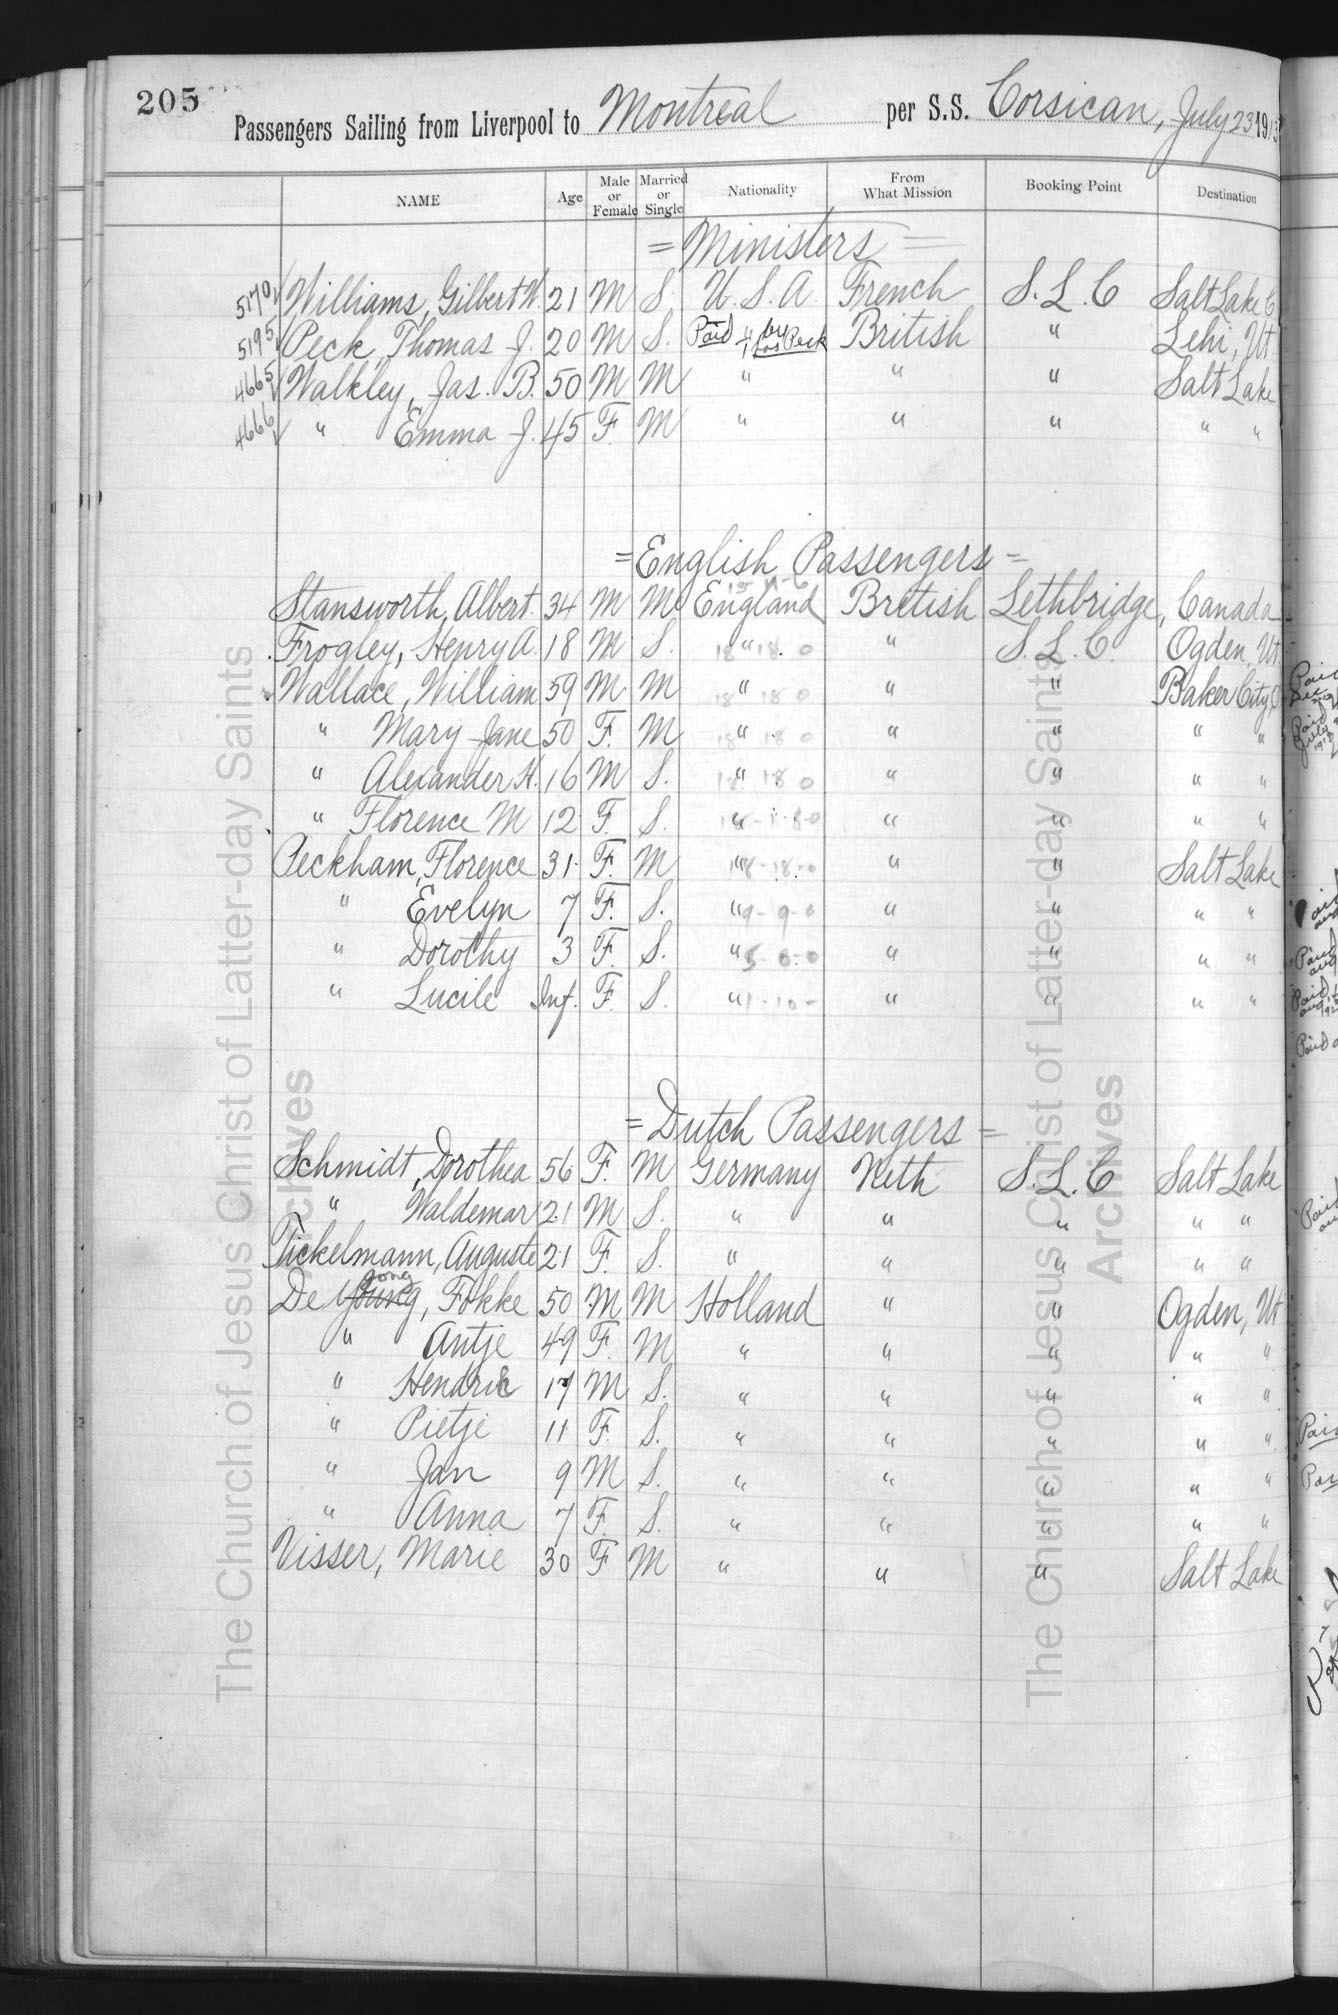 205
Passengers Sailing from Liverpool to Montreal per S.S. Corsican, July 23 1913
NAME Age Male or Female Married or Single Nationality From What Mission Booking Point Destination
= Ministers =
5170 Williams, Gilbert W. 21 M S. U.S.A. French S.L.C Salt Lake C
5195 Peck, Thomas J. 20 M S. Paid " by Jos Peck British " Lehi, Ut.
4665 Walkley, Jas. B. 50 M M " " " Salt Lake
4666 " Emma J. 45 F. M " " " " "
= English Passengers =
Stansworth, Albert 34 M M England British Lethbridge, Canada
Frogley, Henry A. 18 M S. " 18 18 0 " S.L.C. Ogden, Ut.
Wallace, William 59 M M " 18 18 0 " " Baker City, O
" Mary Jane 50 F. M " 18 18 0 " " " "
" Alexander H. 16 M S. " 18 18 0 " " " "
" Florence M 12 F. S. " 18-18-0 " " " "
Peckham, Florence 31 F. M " 18-18-0 " " Salt Lake
" Evelyn 7 F. S. " 9-9-0 " " " "
" Dorothy 3 F. S. " " " " "
" Lucile Inf. F. S. " 1-10- " " " "
= Dutch Passengers =
Schmidt, Dorothea 56 F. M Germany Neth S.L.C Salt Lake
" Waldemar 21 M S. " " " " "
Fickelmann, Auguste 21 F. S. " " " " "
Jong
De Young, Fokke 50 M M Holland " " Ogden, Ut
" Antje 49 F. M " " " " "
" Hendric 17 M S. " " " " "
" Pietje 11 F. S. " " " " "
" Jan 9 M S. " " " " "
" Anna 7 F. S. " " " " "
Visser, Marie 30 F M " " " Salt Lake
The Church of Jesus Christ of Latter-day Saints
Archives
The Church of Jesus Christ of Latter-day Saints
Archives